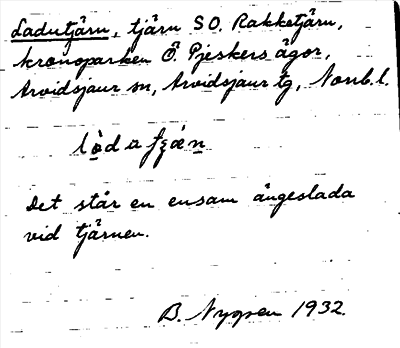 Ladutjärn, tjärn SO. Rakketjärn,
kronoparken Ö. Pjeskers ägor,
Arvidsjaur sn, Arvidsjaur tg, Norrb. l.
Det står en ensam ängeslada
vid tjärnen.
B. Nygren 1932.